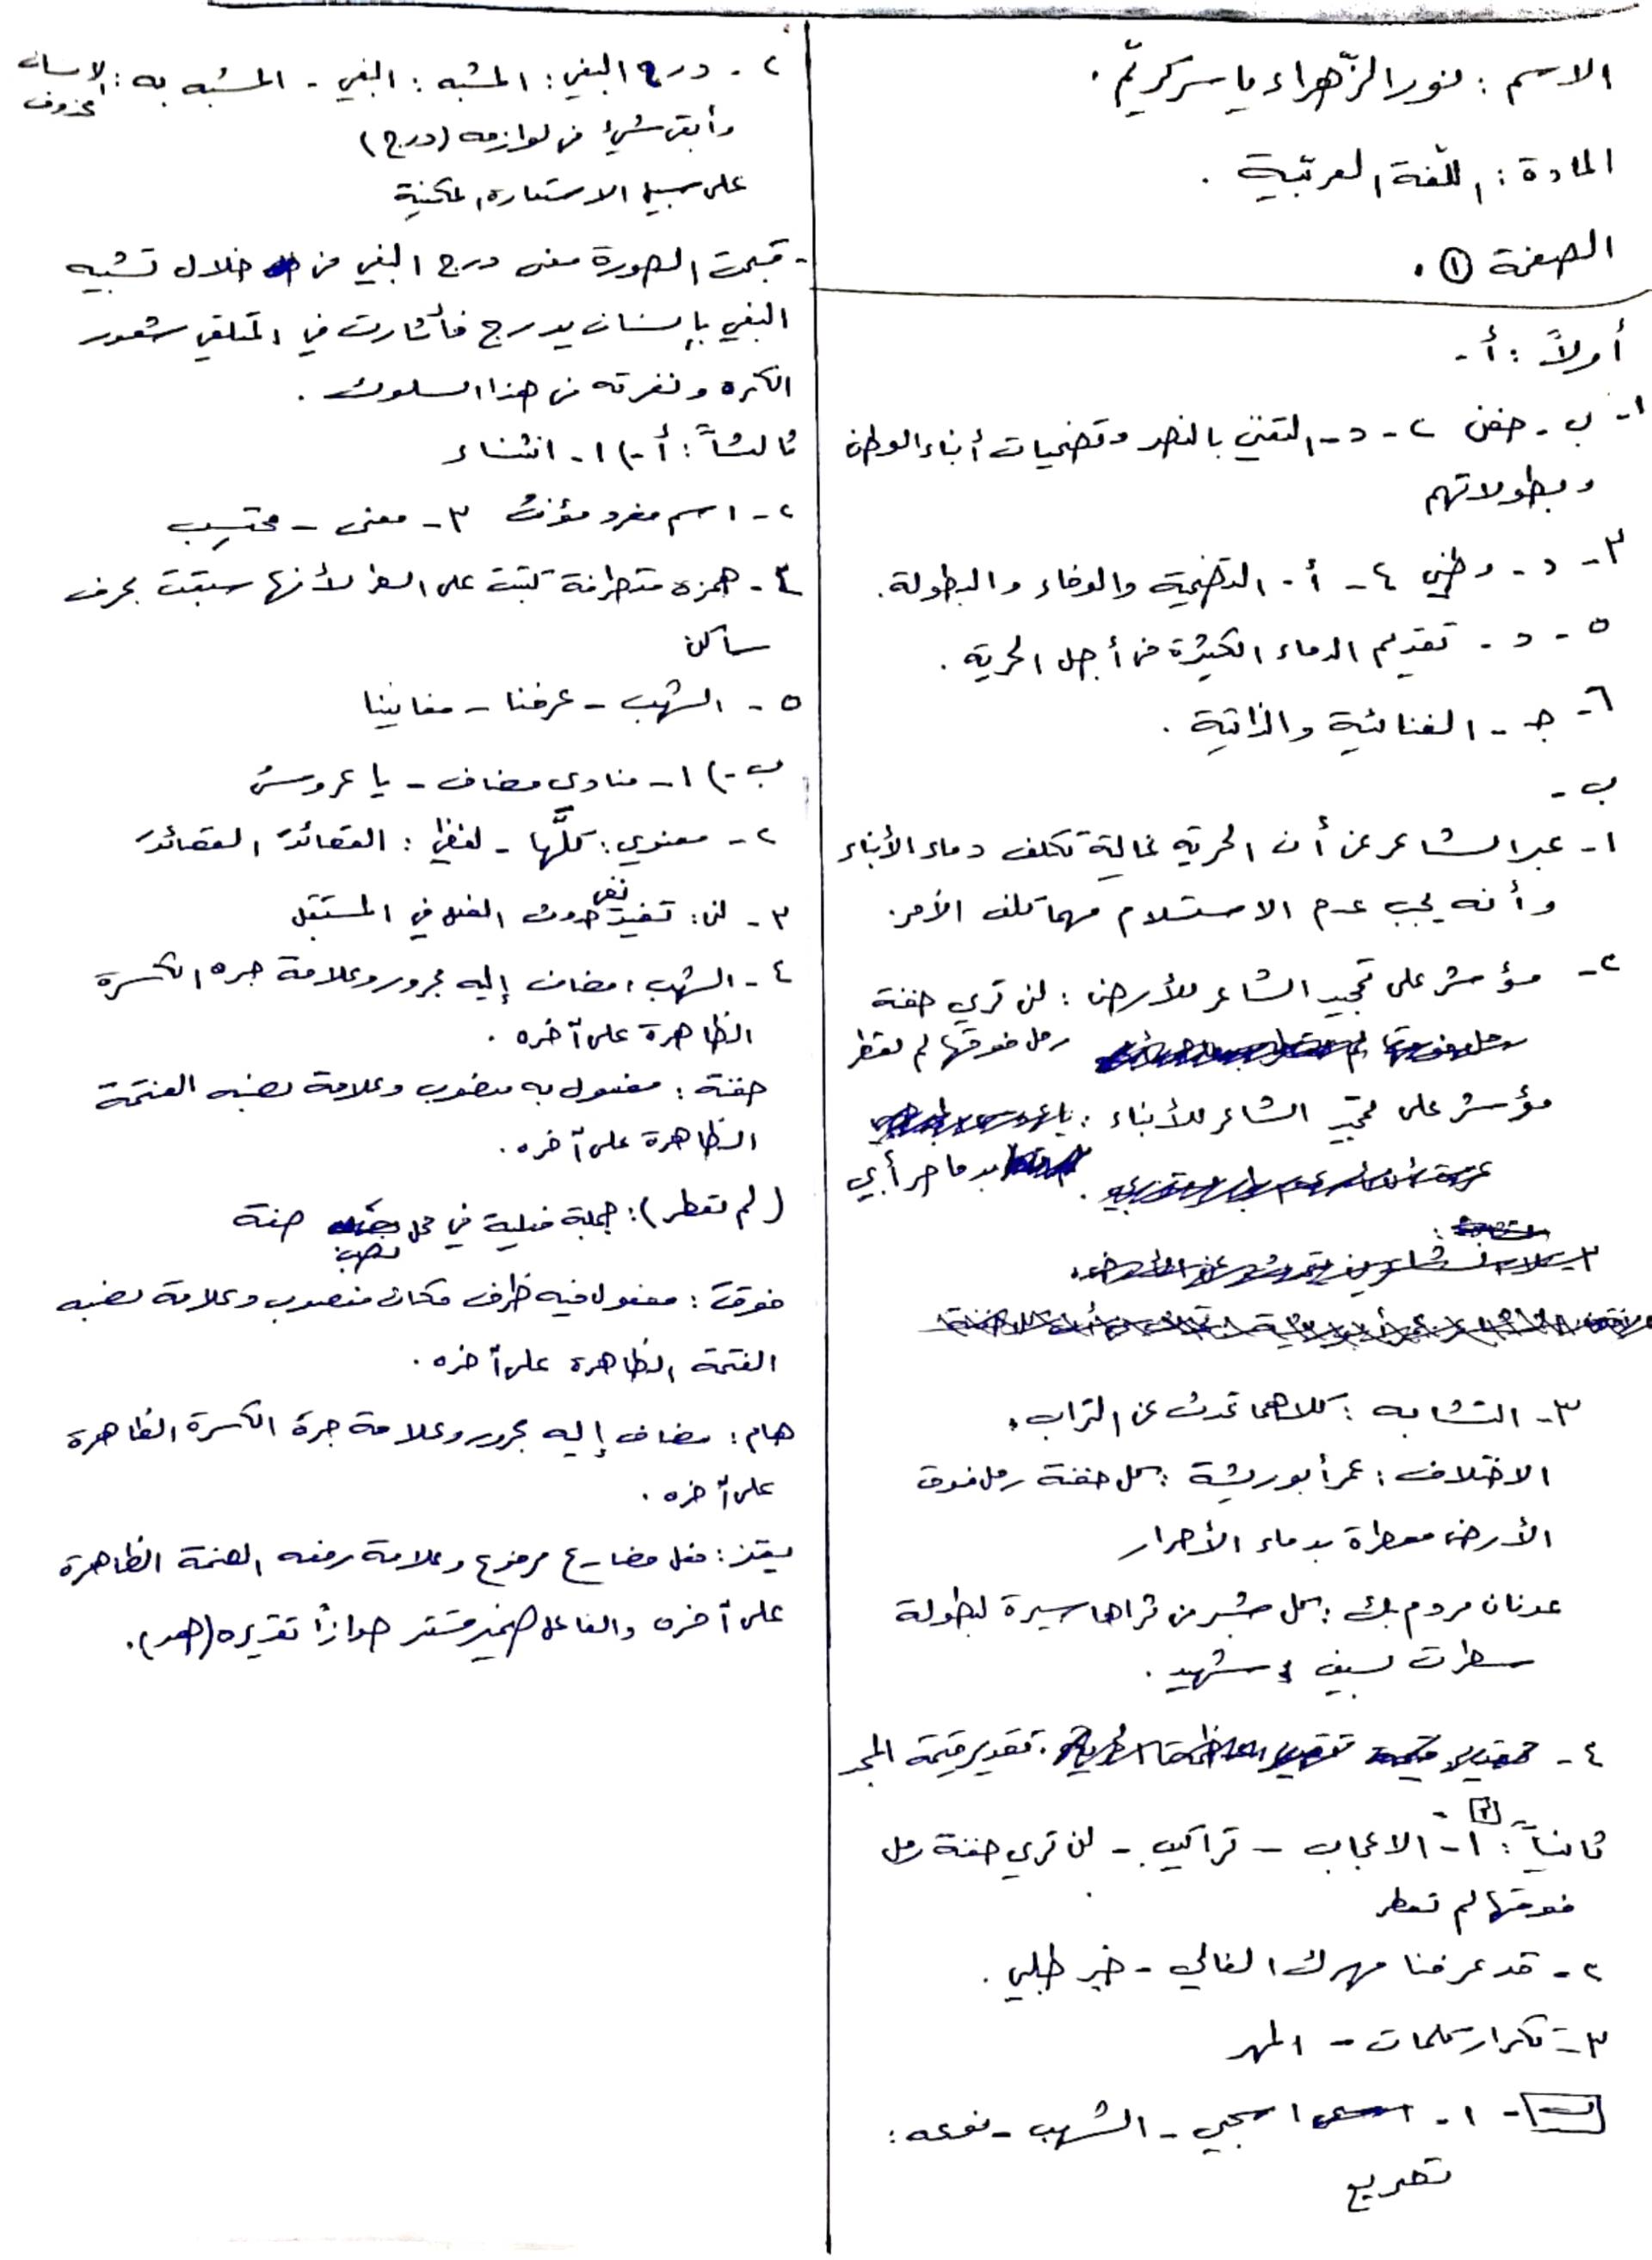 الاسم : نور الزّهراء ياسر كريّم .
المادة : اللّغة العربّية .
الصفحة ① .
أولاً : أ -
١- ب - خفض ٢ - د - التغنّي بالنصر وتضحيات أبناء الوطن
وبطولاتهم
٣ - د - وطني ٤ - أ - التضحية والوفاء والبطولة .
٥ - د - تقديم الدماء الكثيرة من أجل الحرية .
٦ - جـ - الغنائية والذاتية .
ب -
١ - عبر الشاعر عن أن الحرية غالية تكلف دماء الأبناء
وأنه يجب عدم الاستسلام مهما كلف الأمر .
٢ - مؤشر على تمجيد الشاعر للأرض : لن تري حفنة
رمل فوقها لم تعطر
مؤشر على تمجيد الشاعر للأبناء :
بدما حر أبي
٣ - التشابه : كلاهما تحدث عن التراب .
الاختلاف : عمر أبو ريشة : كل حفنة رمل فوق
الأرض معطرة بدماء الأحرار
عدنان مردم بك : كل شبر من ثراها سيرة لبطولة
سطرت بسيف وشهيد .
٤ - تقدير قيمة المجد
ثانياً : أ - ١ - الاعجاب - تراكيب - لن تري حفنة رمل
فوقها لم تعطر
٢ - قد عرفنا مهرك الغالي - خبر طلبي .
٣ - تكرار كلمات - المهر
ب - ١ - اسحبي - الشهب - نوعه :
تصريع
٢ - درج البغي : المشبه : البغي - المشبه به : الانسان
محذوف
وأبقى شيء من لوازمه (درج)
على سبيل الاستعارة المكنية
- قبحت الصورة معنى درج البغي من خلال تشبيه
البغي بإنسان يدرج فأثارت في المتلقي شعور
الكره ونفرته من هذا السلوك .
ثالثاً : أ -) ١ - انشاء
٢ - اسم مفرد مؤنث ٣ - معنى - محتسِب
٤ - همزه متطرفة كتبت على السطر لأنها سبقت بحرف
ساكن
٥ - الشهب - عرفنا - مغانينا
ب -) ١ - منادى مضاف - يا عروسَ
٢ - معنوي : كلَّها - لفظي : القصائدَ القصائدَ
٣ - لن : تفيد نفي حدوث الفعل في المستقبل
٤ - الشهب : مضاف إليه مجرور وعلامة جره الكسرة
الظاهرة على آخره .
حفنة : مفعول به منصوب وعلامة نصبه الفتحة
الظاهرة على آخره .
(لم تعطر) : جملة فعلية في محل نصب صفة
فوقَ : مفعول فيه ظرف مكان منصوب وعلامة نصبه
الفتحة الظاهرة على آخره .
هام : مضاف إليه مجرور وعلامة جره الكسرة الظاهرة
على آخره .
يعتز : فعل مضارع مرفوع وعلامة رفعه الضمة الظاهرة
على آخره والفاعل ضمير مستتر جوازاً تقديره (هو) .